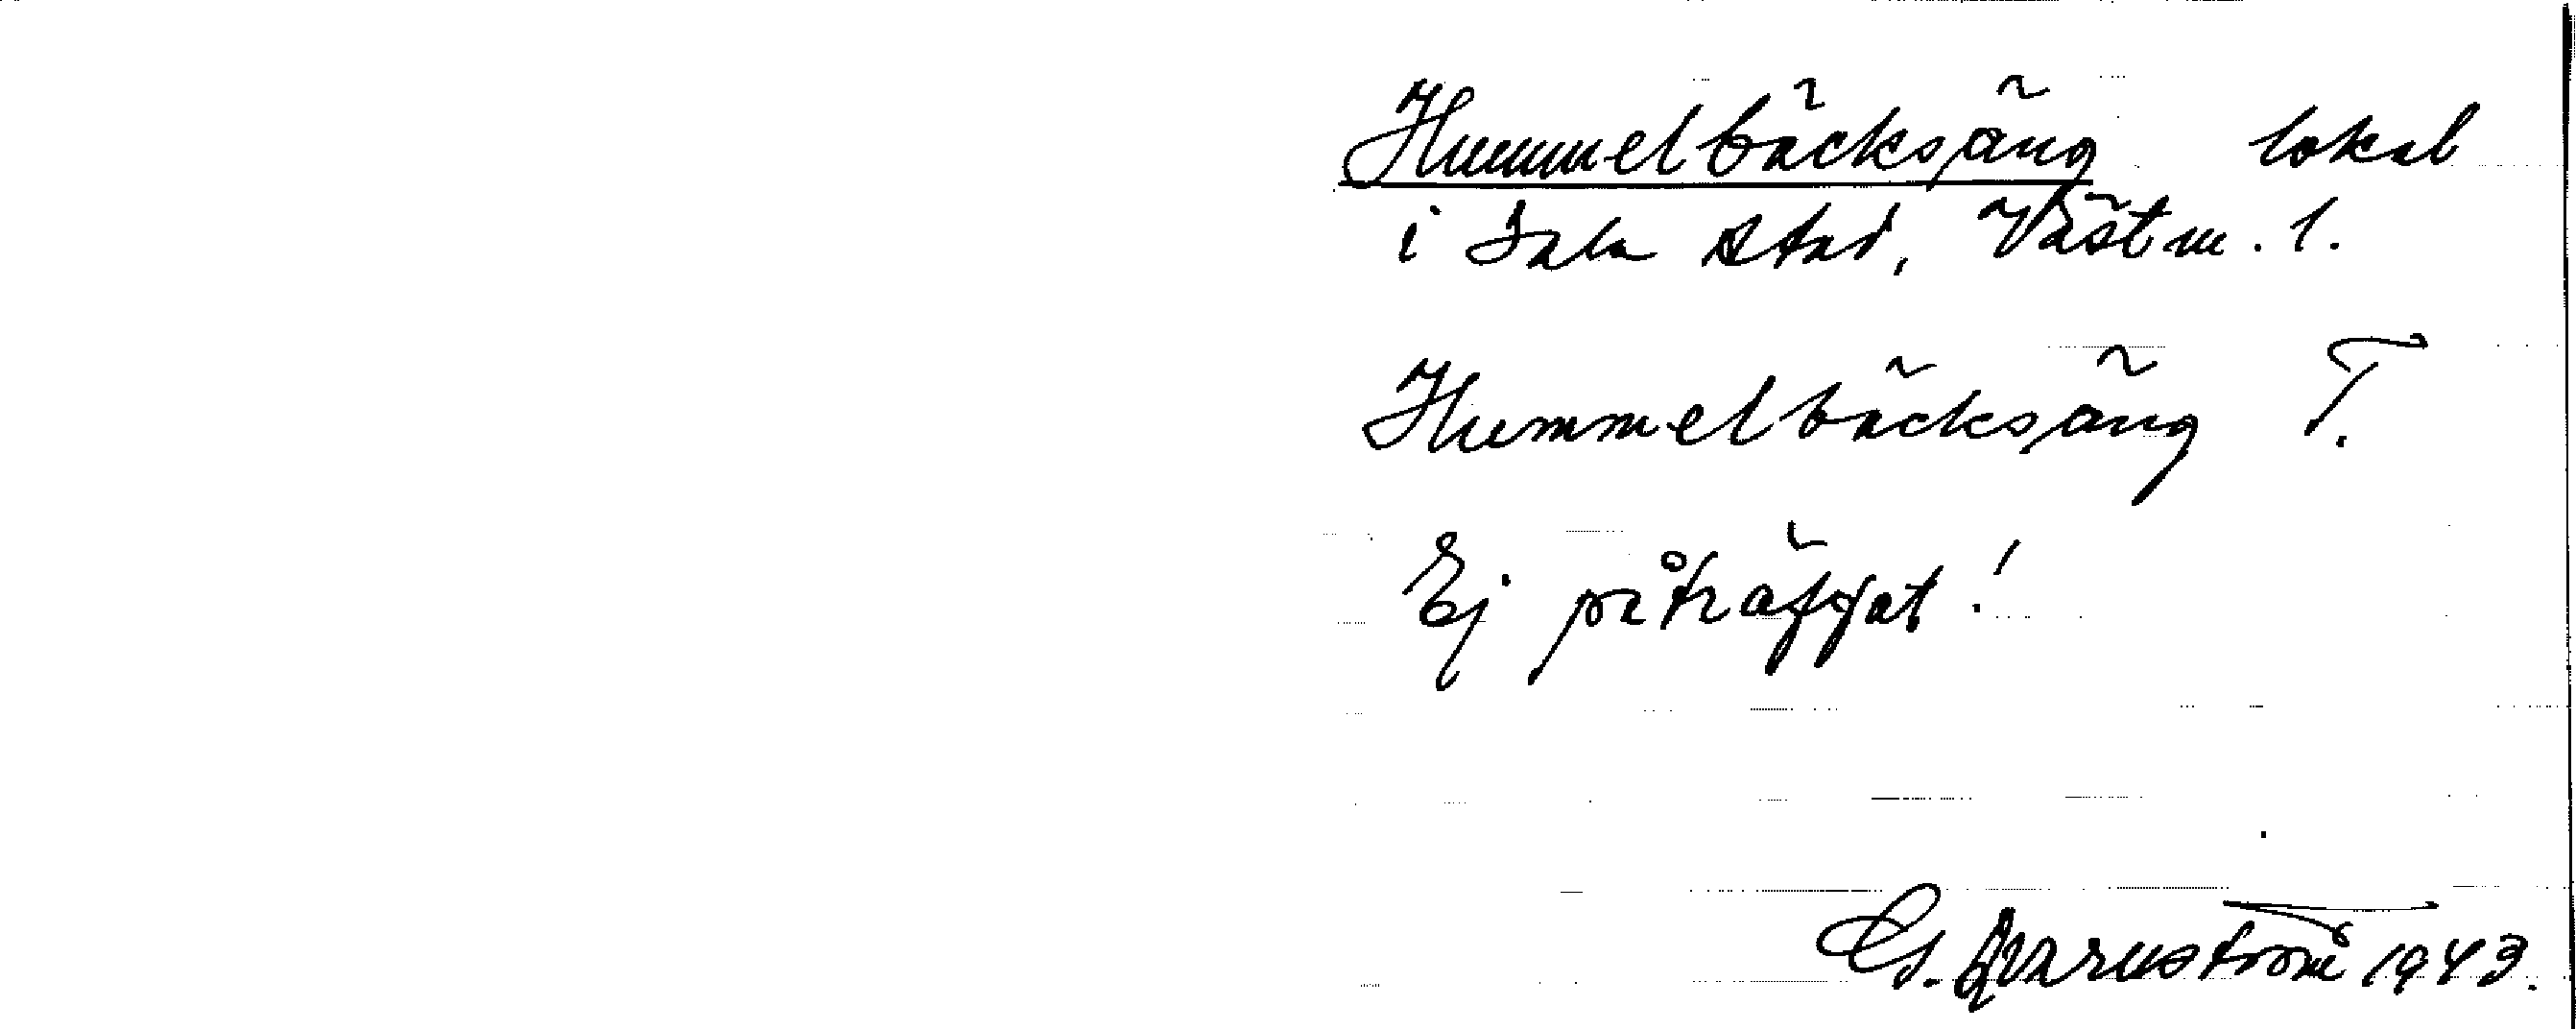 Hummelbäcksäng lokal
i Sala stad, Västm. l.
Hummelbäcksäng T.
Ej påträffat!
G. Qvarnström 1943.